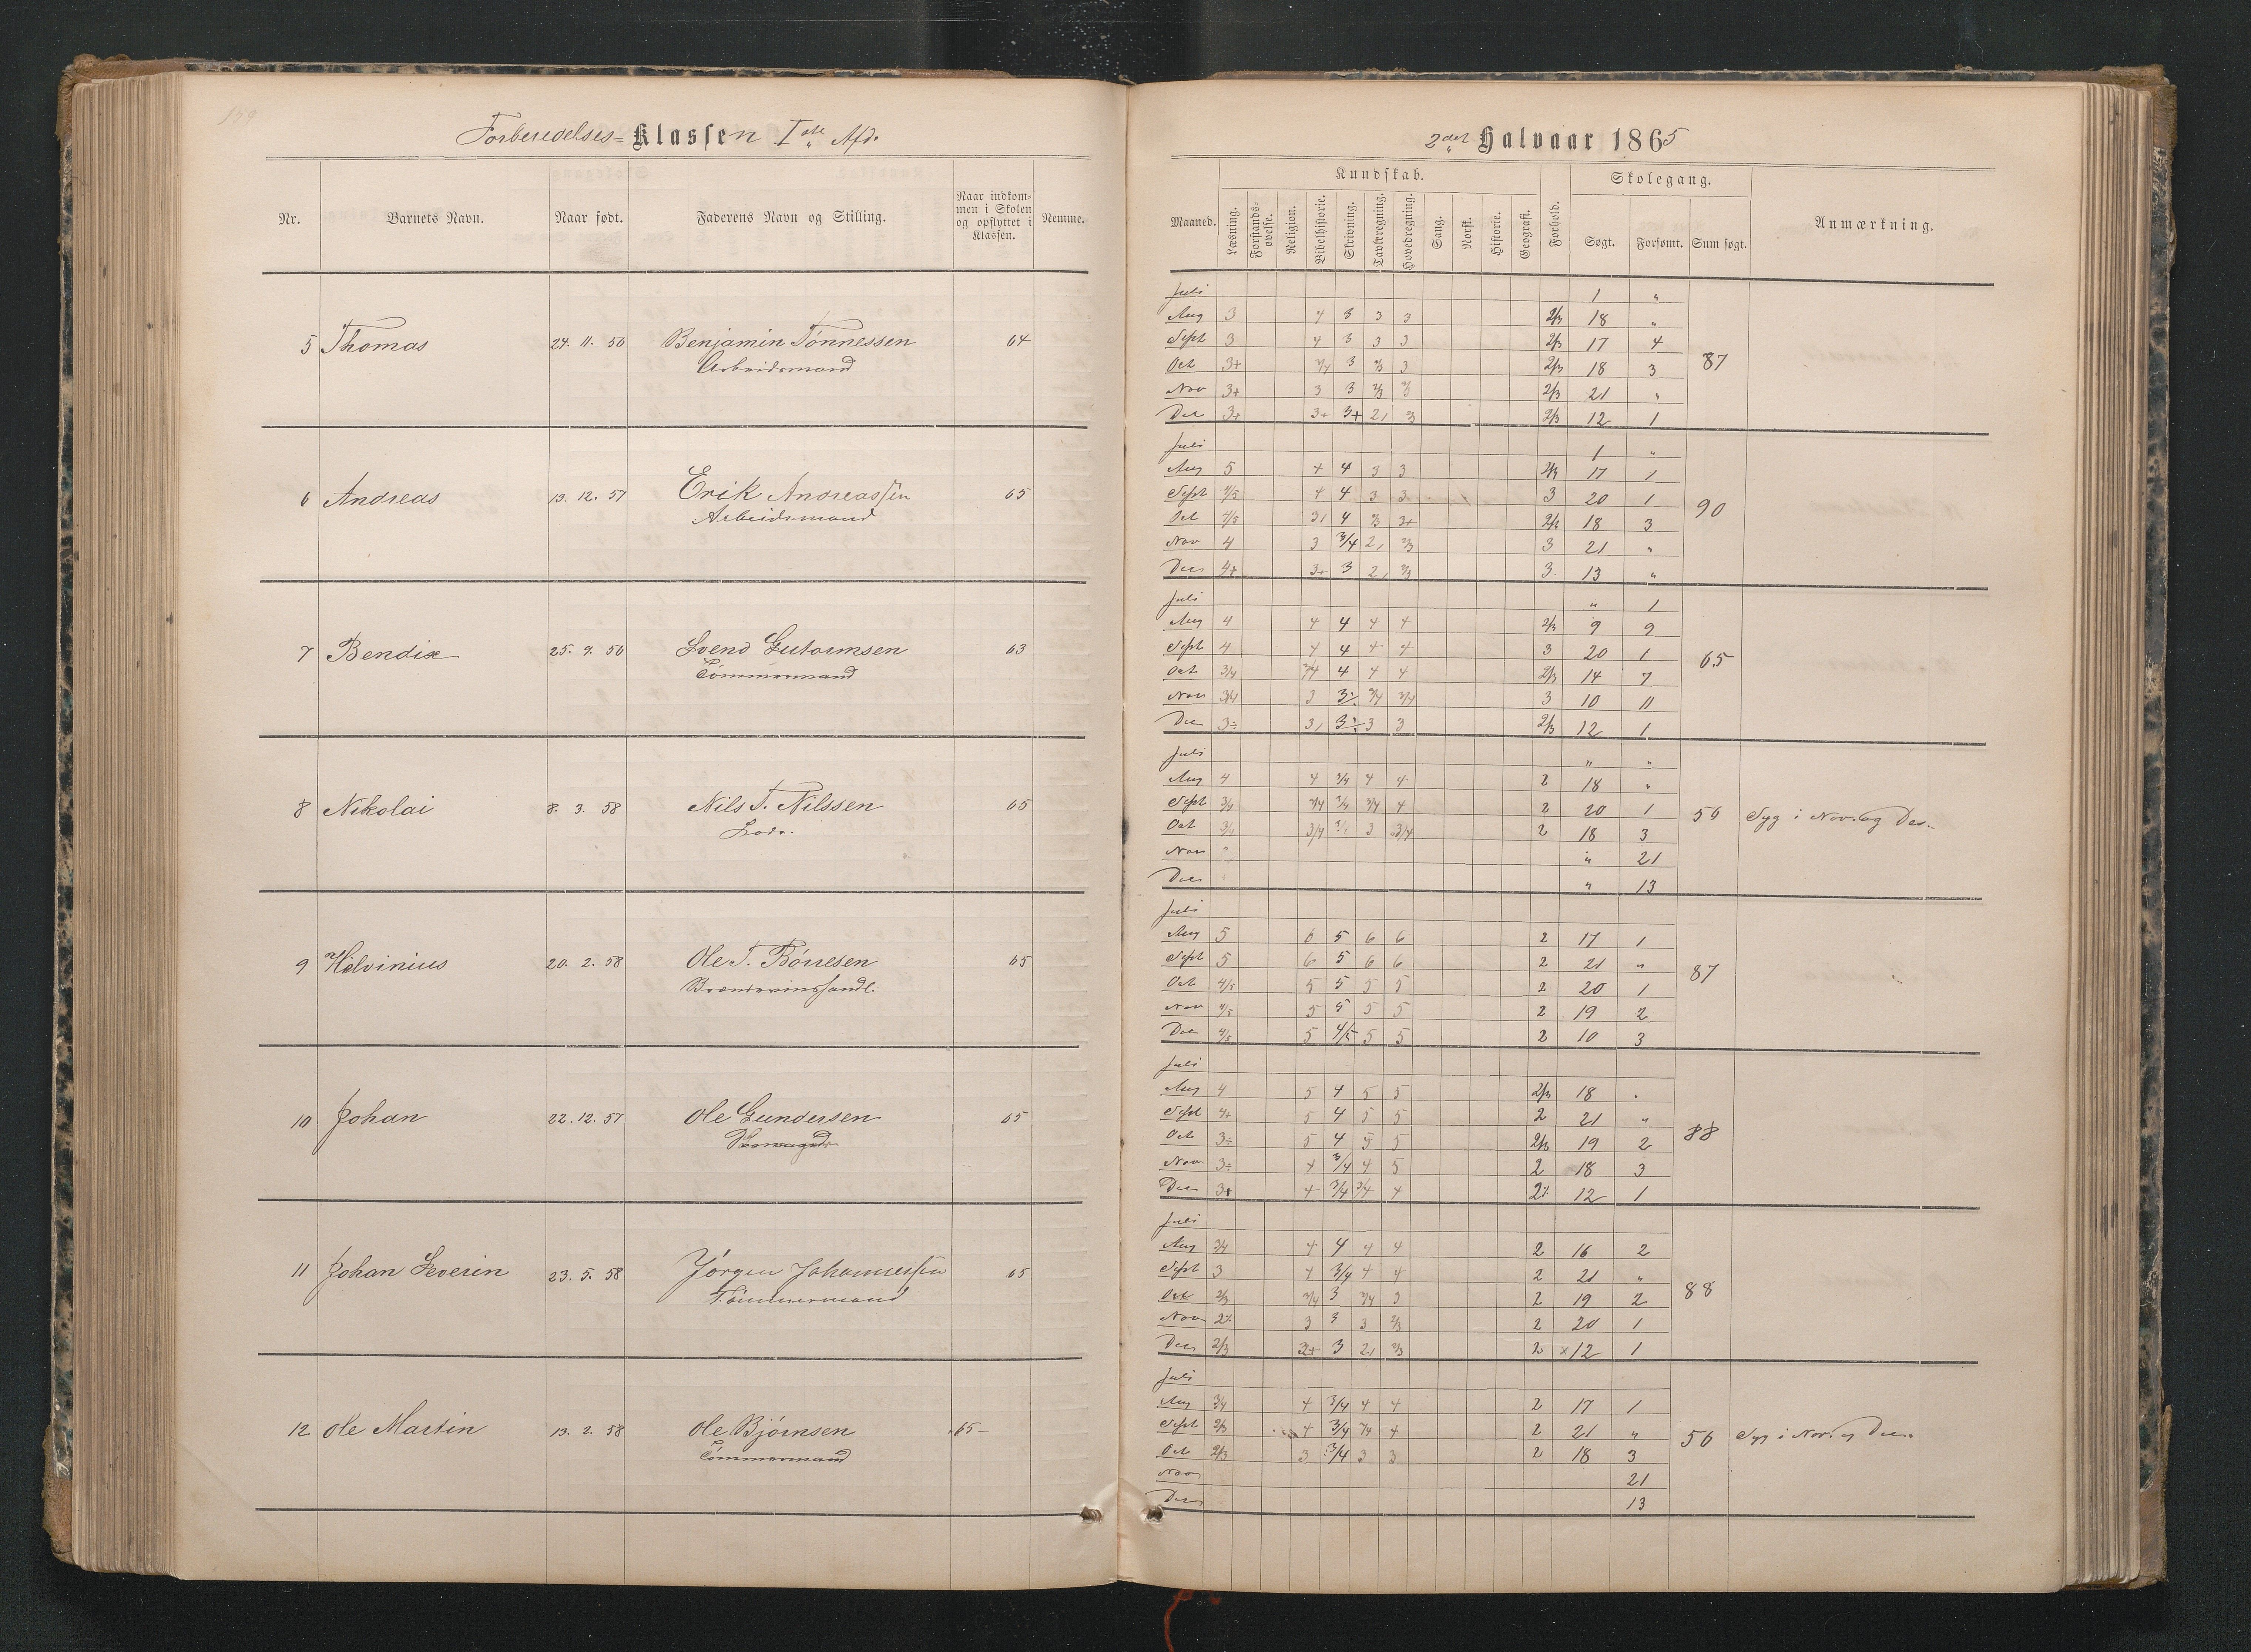 139
Forberedelses-Klassen Iste Afd.
Nr. Barnets Navn. Naar født. Faderens Navn og Stilling. Naar indkommen i Skolen og opflyttet i Klassen. Nemme.
5 Thomas 24. 11. 56 Benjamin Tønnessen 64
Arbeidsmand
6 Andreas 13. 12. 57 Erik Andreassen 65
Arbeidsmand
7 Bendix 25. 9. 56 Svend Gutormsen 63
Tømmermand
8 Nikolai 8. 3. 58 Nils T. Nilssen 65
Lods.
9 Helvinius 20. 2. 58 Ole T. Børresen 65
Brændevinshandl.
10 Johan 22. 12. 57 Ole Gundersen 65
11 Johan Severin 23. 5. 58 Jørgen Johannessen 65
Tømmermand
12 Ole Martin 13. 2. 58 Ole Bjørnsen 65
Tømmermand
2det Halvaar 1865
Kundskab. Skolegang.
Maaned. Læsning. Forstandsøvelse. Religion. Bibelhistorie. Skrivning. Tavleregning. Hovedregning. Sang. Norsk. Historie. Geografi. Forhold. Søgt. Forsømt. Sum søgt. Anmærkning.
Juli 1 "
Aug 3 4 3 3 3 2/3 18 "
Sept 3 4 3 3 3 2/3 17 4
Oct 3+ 3/4 3 2/3 3 2/3 18 3 87
Nov 3+ 3 3 2/3 2/3 2/3 21 "
Dec 3+ 3+ 3+ 2, 2/3 2/3 12 1
Juli 1 "
Aug 5 4 4 3 3 2/3 17 1
Sept 4/5 4 4 3 3 3 20 1 90
Oct 4/5 3, 4 2/3 3+ 2/3 18 3
Nov 4 3 3/4 2, 2/3 3 21 "
Dec 4+ 3+ 3 2, 2/3 3 13 "
Juli " 1
Aug 4 4 4 4 4 2/3 9 9
Sept 4 4 4 4 4 3 20 1 65
Oct 3/4 3/4 4 4 4 2/3 14 7
Nov 3/4 3 3÷ 3/4 3/4 3 10 11
Dec 3÷ 3, 3÷ 3 3 2/3 12 1
Juli " "
Aug 4 4 3/4 4 4 2 18 "
Sept 3/4 3/4 3/4 3/4 4 2 20 1 56 Syg i Nov. og Dec.
Oct 3/4 3/4 3/4 3 3/4 2 18 3
Nov " " 21
Dec " " 13
Juli
Aug 5 6 5 6 6 2 17 1
Sept 5 6 5 6 6 2 21 " 87
Oct 4/5 5 5 5 5 2 20 1
Nov 4/5 5 5 5 5 2 19 2
Dec 4/5 5 4/5 5 5 2 10 3
Juli
Aug 4 5 4 5 5 2/3 18 "
Sept 4+ 5 4 5 5 2 21 "
Oct 3÷ 5 4 5 5 2/3 19 2 88
Nov 3÷ 4 3/4 4 5 2 18 3
Dec 3+ 4 3/4 3/4 4 2÷ 12 1
Juli
Aug 3/4 4 4 4 4 2 16 2
Sept 3 4 3/4 4 4 2 21 "
Oct 2/3 3/4 3 3/4 3 2 19 2 88
Nov 2÷ 3 3 3 2/3 2 20 1
Dec 2/3 2+ 3 2, 2/3 2 ×12 1
Juli
Aug 3/4 4 3/4 4 4 2 17 1
Sept 2/3 4 3/4 3/4 4 2 21 " 56 Syg i Nov. og Dec.
Oct 2/3 3 3/4 3 3 2 18 3
Nov 21
Dec 13